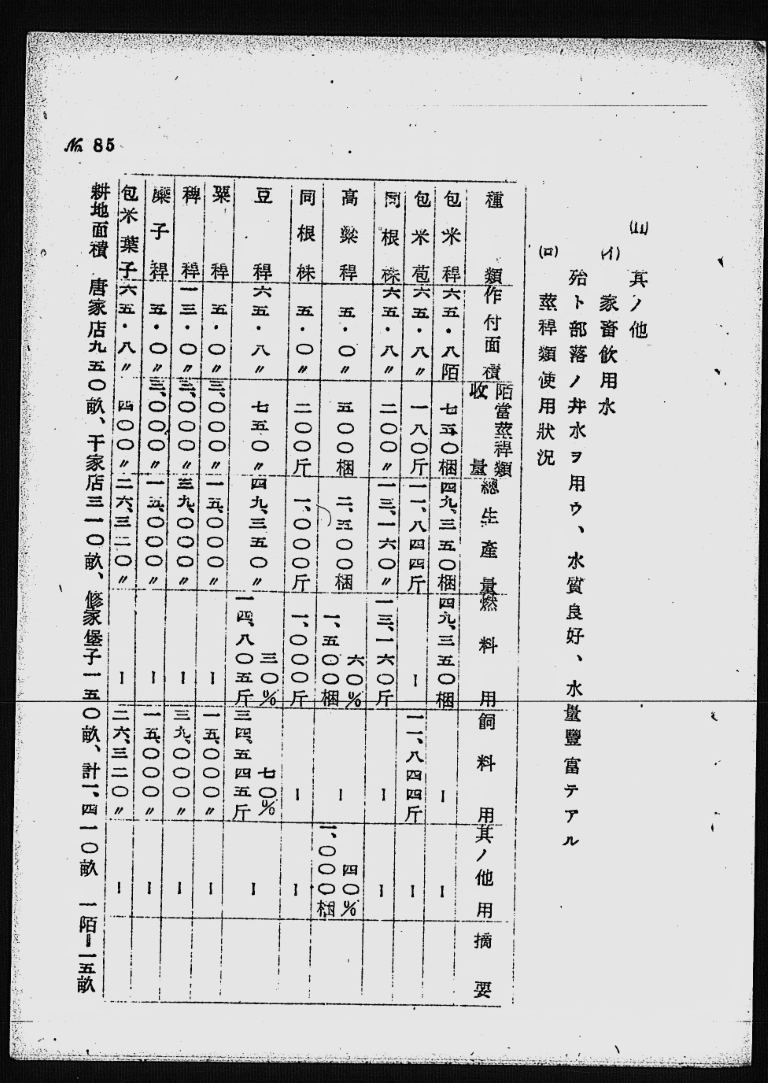 No. 85
(四) 其ノ他
(イ) 家畜飲用水
殆ト部落ノ井水ヲ用ウ、水質良好、水量豐富テアル
(ロ) 蒸稈類使用狀況
種類 作付面積 陌當蒸稈類收量 總生產量 燃料用 飼料用 其ノ他用 摘要
包米稈 六五・八陌 七五〇梱 四九、三五〇梱 四九、三五〇梱 ー ー
包米苞 六五・八〃 一八〇斤 一一、八四四斤 ー 一一、八四四斤 ー
同根株 六五・八〃 二〇〇〃 一三、一六〇〃 一三、一六〇斤 ー ー
高粱稈 五・〇〃 五〇〇梱 二、五〇〇梱 六〇% 一、五〇〇梱 ー 四〇% 一、〇〇〇梱
同根株 五・〇〃 二〇〇斤 一、〇〇〇斤 一、〇〇〇斤 ー ー
豆稈 六五・八〃 七五〇〃 四九、三五〇〃 三〇% 一四、八〇五斤 七〇% 三四、五四五斤 ー
粟稈 五・〇〃 三、〇〇〇〃 一五、〇〇〇〃 ー 一五、〇〇〇〃 ー
稗稈 一三・〇〃 三、〇〇〇〃 三九、〇〇〇〃 ー 三九、〇〇〇〃 ー
糜子稈 五・〇〃 三、〇〇〇〃 一五、〇〇〇〃 ー 一五、〇〇〇〃 ー
包米葉子 六五・八〃 四〇〇〃 二六、三二〇〃 ー 二六、三二〇〃 ー
耕地面積 唐家店九五〇畝、于家店三一〇畝、修家堡子一五〇畝、計一、四一〇畝 一陌=一五畝